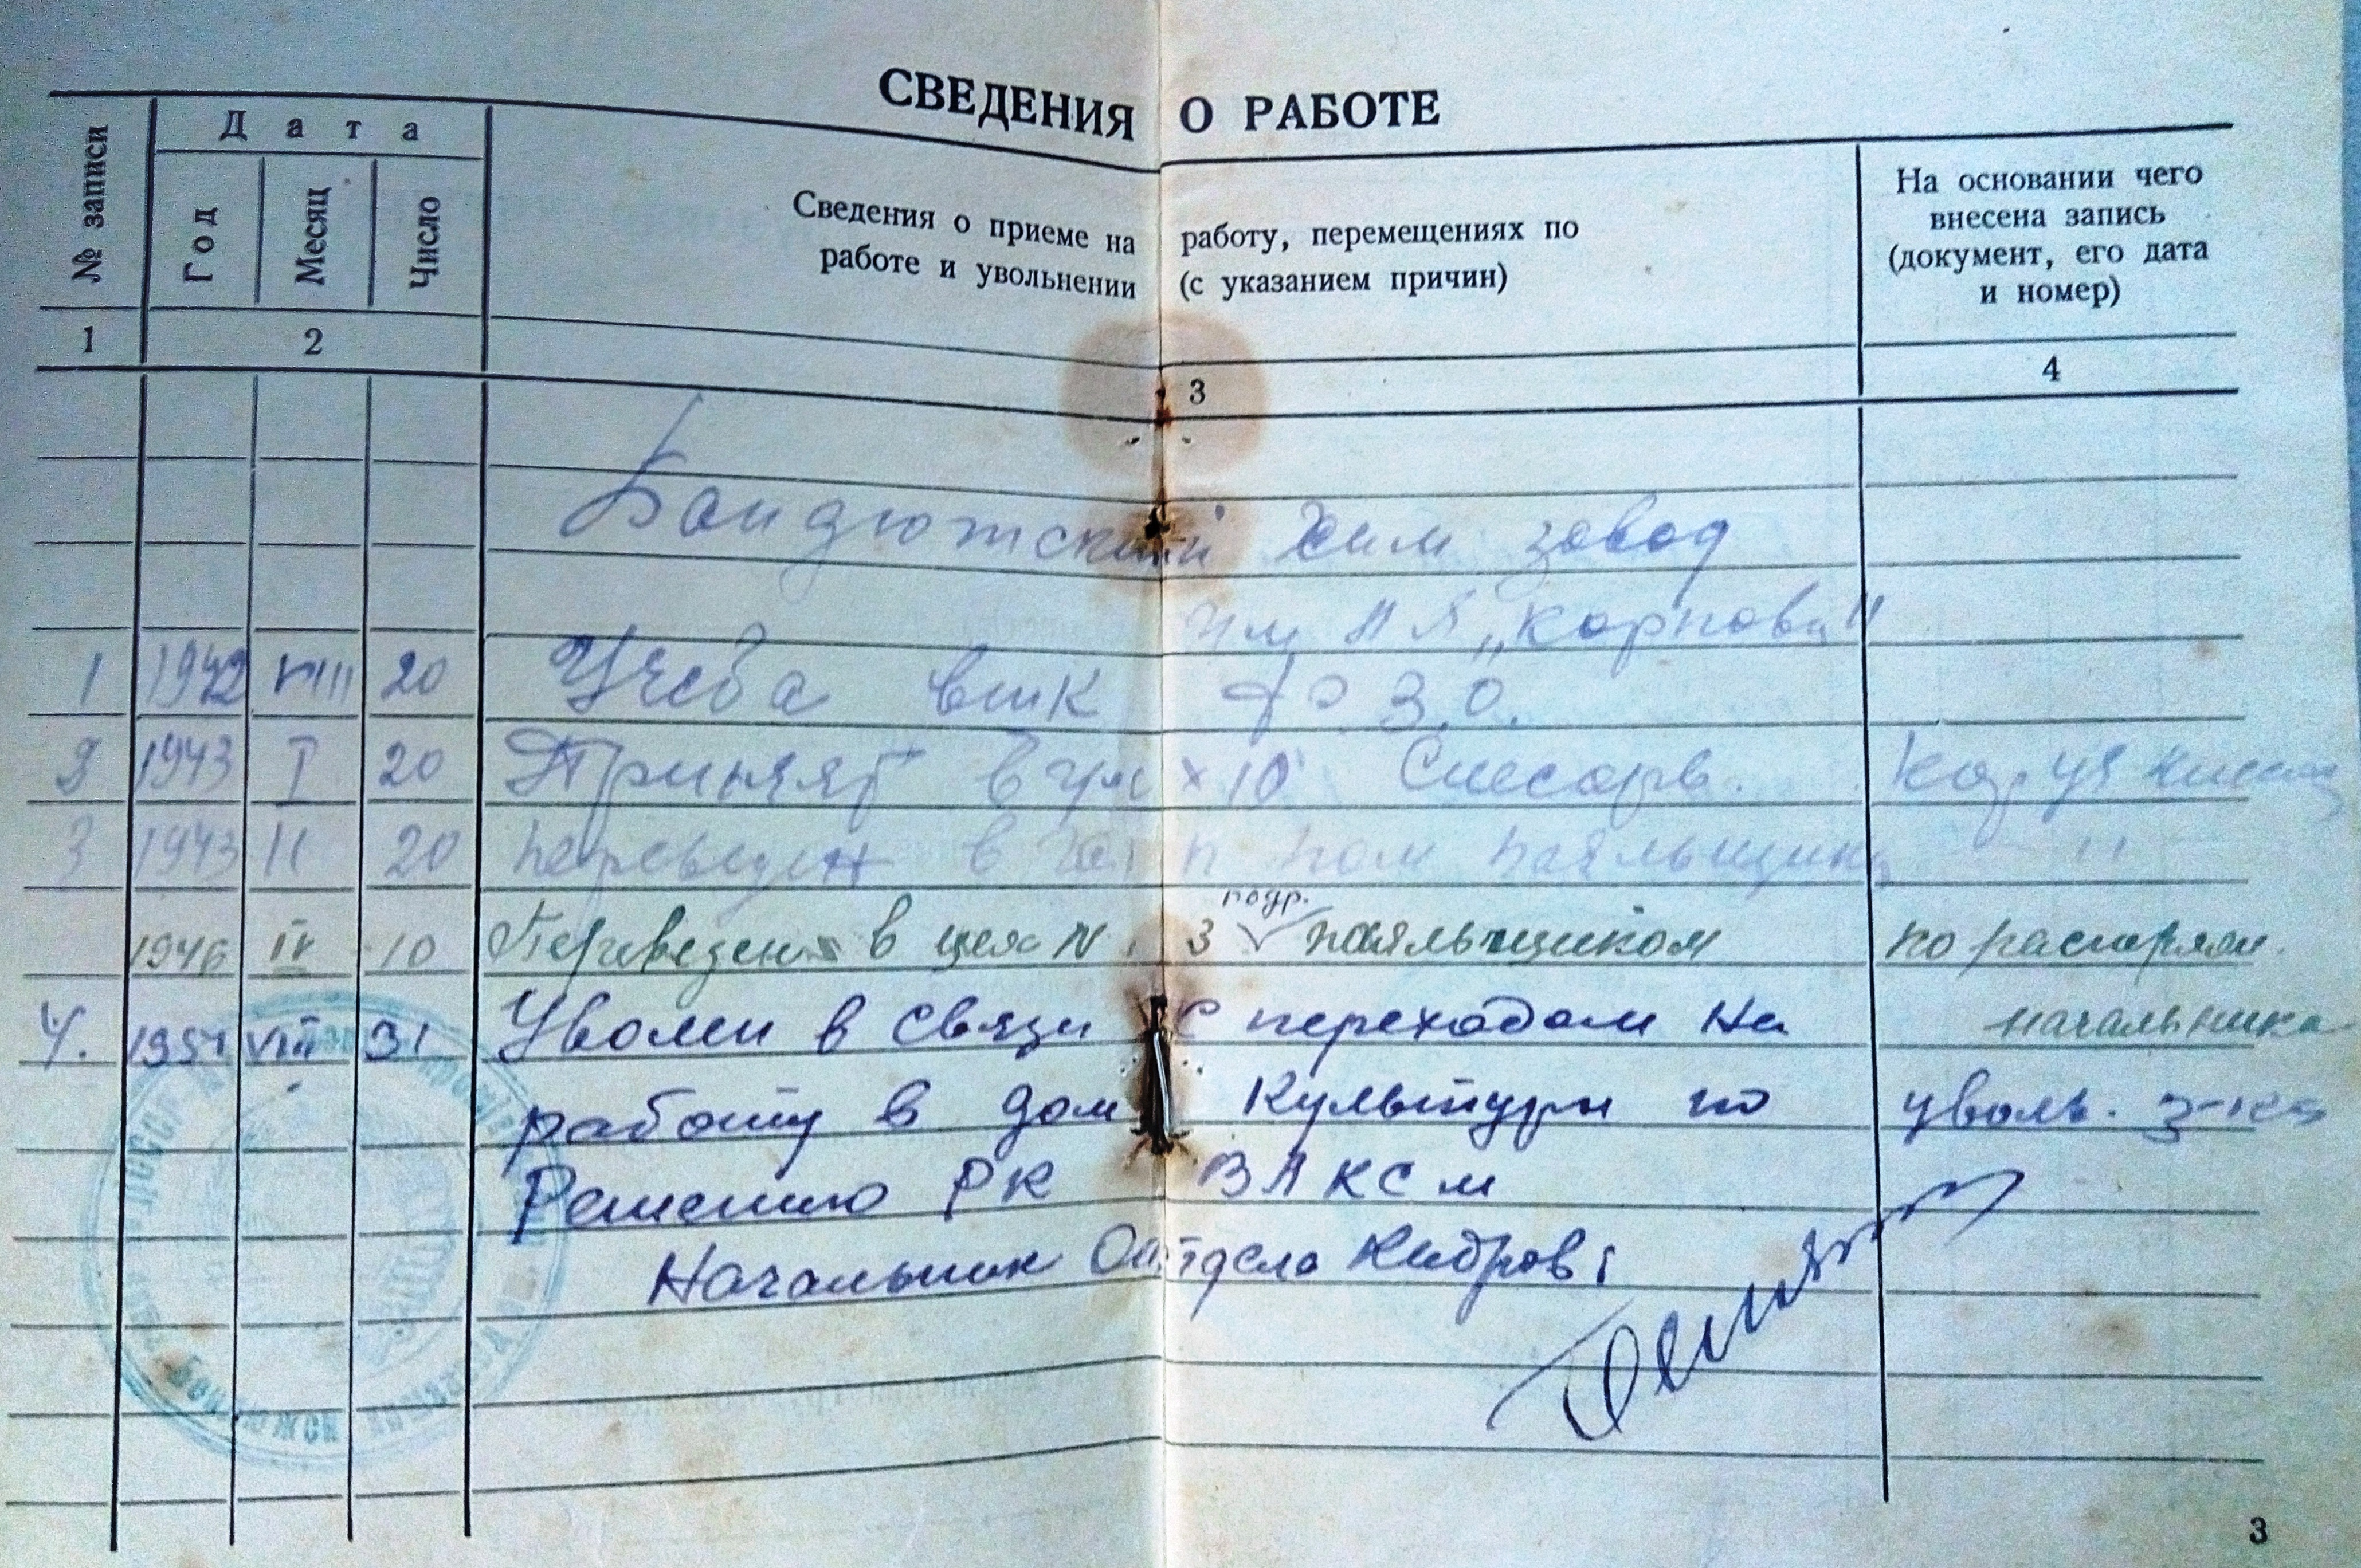 СВЕДЕНИЯ О РАБОТЕ
№ записи
Дата
Год
Месяц
Число
Сведения о приеме на работу, перемещениях по
работе и увольнении (с указанием причин)
На основании чего
внесена запись
(документ, его дата
и номер)
1 2 3 4
Бондюжский хим завод
им Л Я „Карпова"
1 1942 VIII 20 Учеба в шк ФЗО.
2 1943 I 20 Принят в цех 10 Слесарь.
3 1943 II 20 переведен в пом паяльщика "
подр.
1946 IV 10 Переведен в цех N 3 паяльщиком по распоряж.
начальника
4. 1951 VIII 31 Уволен в связи с переходом на
работу в дом Культуры по уволь. з-ка
Решению РК ВЛКСМ
Начальник Отдела Кадров:
3